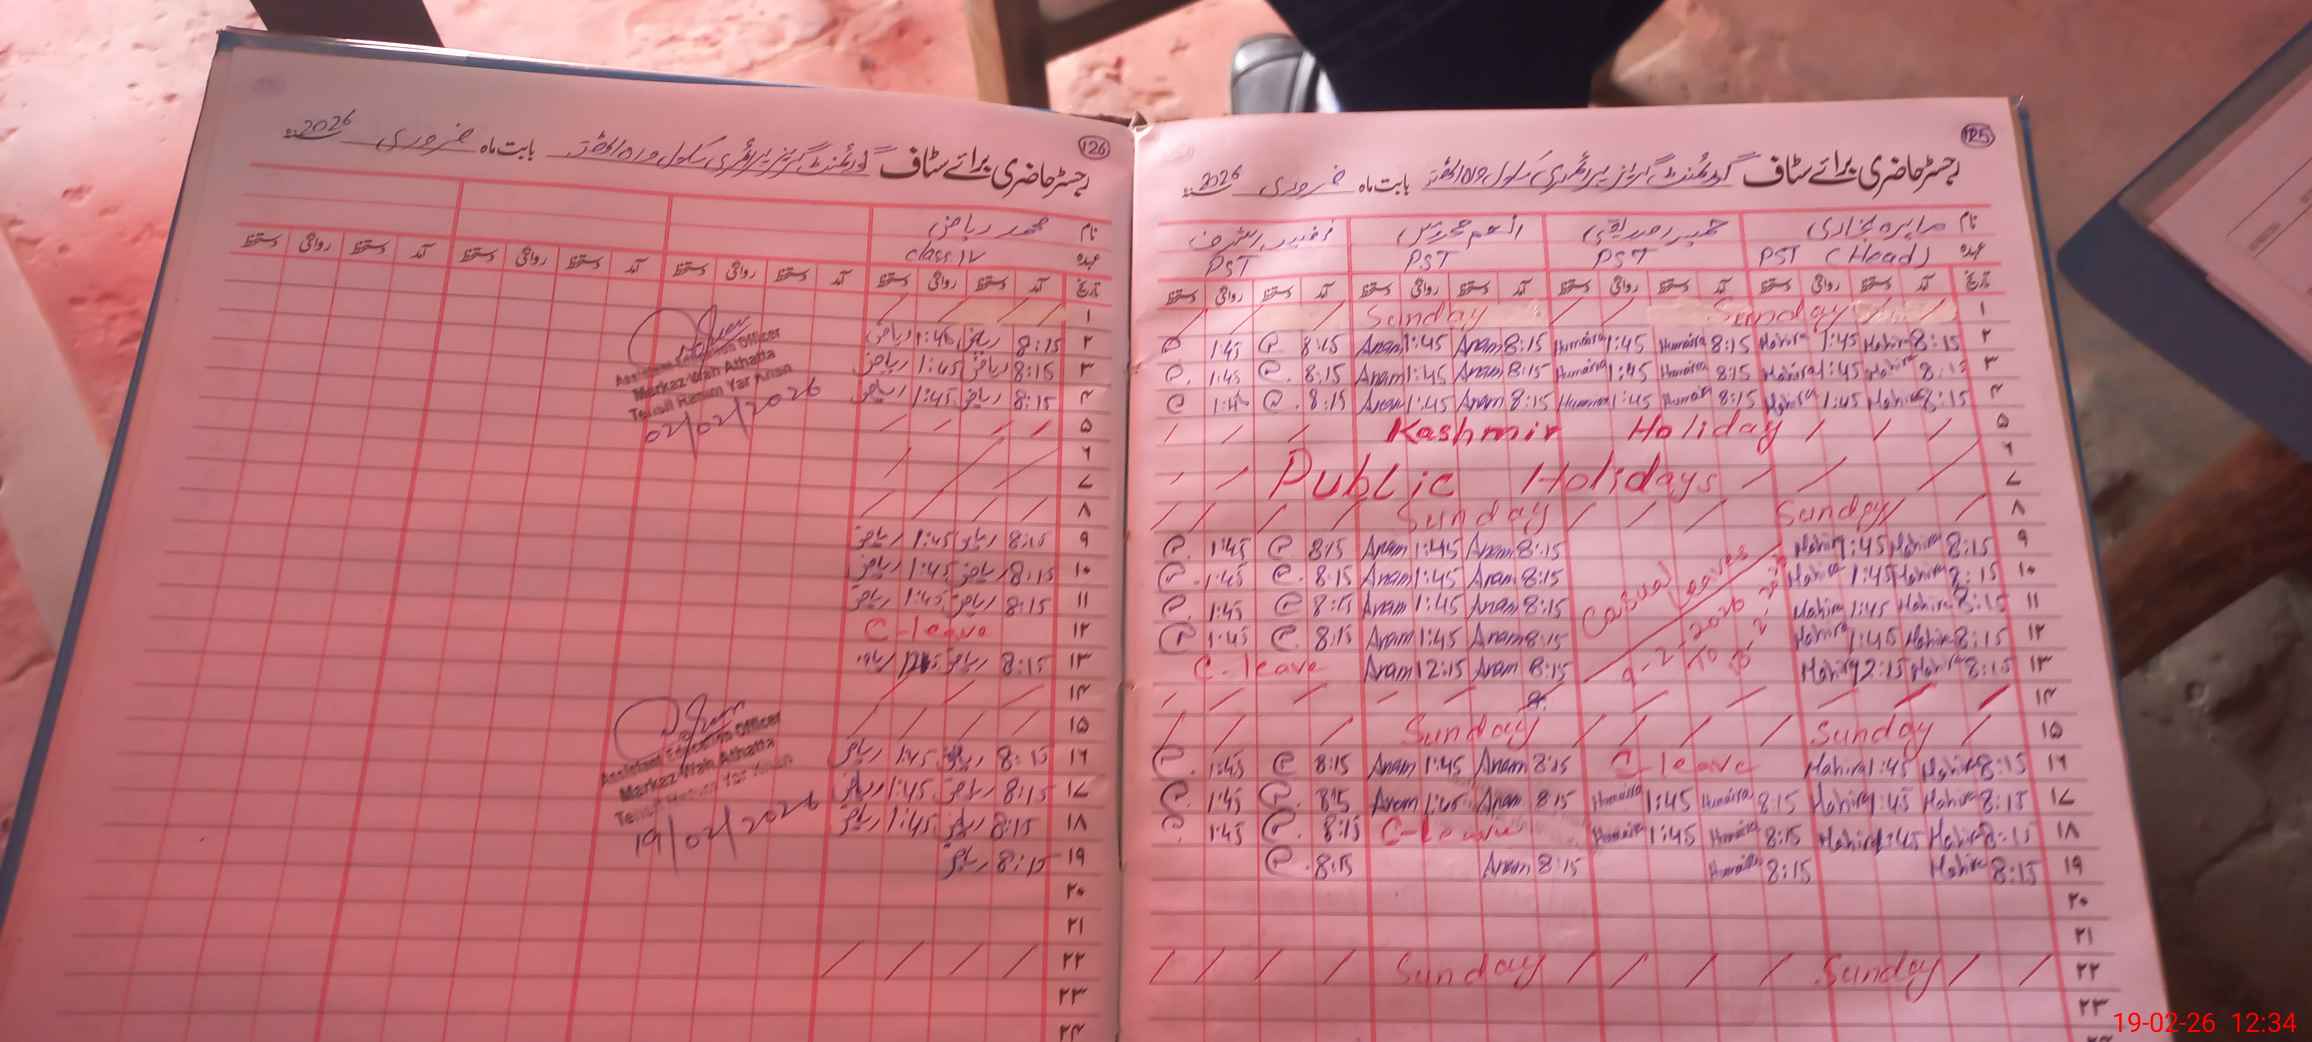 126
رجسٹر حاضری برائے سٹاف گورنمنٹ گرلز پرائمری سکول واہ اٹھتہ بابت ماہ فروری 2026ء
نام محمد ریاض
عہدہ Class IV
تاریخ آمد دستخط روانگی دستخط آمد دستخط روانگی دستخط آمد دستخط روانگی دستخط آمد دستخط روانگی دستخط
۱
۲ 8:15 ریاض 1:45 ریاض
۳ 8:15 ریاض 1:45 ریاض
۴ 8:15 ریاض 1:45 ریاض
۵
۶
۷
۸
۹ 8:15 ریاض 1:45 ریاض
۱۰ 8:15 ریاض 1:45 ریاض
۱۱ 8:15 ریاض 1:45 ریاض
۱۲ C-leave
۱۳ 8:15 ریاض ریاض
۱۴
۱۵
۱۶ 8:15 ریاض 1:45 ریاض
۱۷ 8:15 ریاض 1:45 ریاض
۱۸ 8:15 ریاض 1:45 ریاض
۱۹ 8:15 ریاض
۲۰
۲۱
۲۲
۲۳
۲۴
Assistant Education Officer
Markaz Wah Athatta
Tehsil Rahim Yar Khan
02/02/2026
Assistant Education Officer
Markaz Wah Athatta
Tehsil Rahim Yar Khan
19/02/2026
125
رجسٹر حاضری برائے سٹاف گورنمنٹ گرلز پرائمری سکول واہ اٹھتہ بابت ماہ فروری 2026ء
نام
عہدہ PST (Head) PST PST PST
تاریخ آمد دستخط روانگی دستخط آمد دستخط روانگی دستخط آمد دستخط روانگی دستخط آمد دستخط روانگی دستخط
۱ Sunday Sunday
۲ 8:15 Mahira 1:45 Mahira 8:15 Humaira 1:45 Humaira 8:15 Anam 1:45 Anam 8:15 1:45
۳ 8:15 Mahira 1:45 Mahira 8:15 Humaira 1:45 Humaira 8:15 Anam 1:45 Anam 8:15 1:45
۴ 8:15 Mahira 1:45 Mahira 8:15 Humaira 1:45 Humaira 8:15 Anam 1:45 Anam 8:15 1:45
۵ Kashmir Holiday
۶
۷ Public Holidays
۸ Sunday Sunday
۹ 8:15 Mahira 1:45 Mahira 8:15 Anam 1:45 Anam 8:15 1:45
۱۰ 8:15 Mahira 1:45 Mahira 8:15 Anam 1:45 Anam 8:15 1:45
۱۱ 8:15 Mahira 1:45 Mahira 8:15 Anam 1:45 Anam 8:15 1:45
۱۲ 8:15 Mahira 1:45 Mahira 8:15 Anam 1:45 Anam 8:15 1:45
۱۳ 8:15 Mahira 12:15 Mahira 8:15 Anam 12:15 Anam C-leave
Casual leaves
9-2-2026 to
۱۴
۱۵ Sunday Sunday
۱۶ 8:15 Mahira 1:45 Mahira C-leave 8:15 Anam 1:45 Anam 8:15 1:45
۱۷ 8:15 Mahira 1:45 Mahira 8:15 Humaira 1:45 Humaira 8:15 Anam 1:45 Anam 8:15 1:45
۱۸ 8:15 Mahira 1:45 Mahira 8:15 Humaira 1:45 Humaira C-leave 8:15 1:45
۱۹ 8:15 Mahira 8:15 Humaira 8:15 Anam 8:15
۲۰
۲۱
۲۲ Sunday Sunday
۲۳
19-02-26 12:34